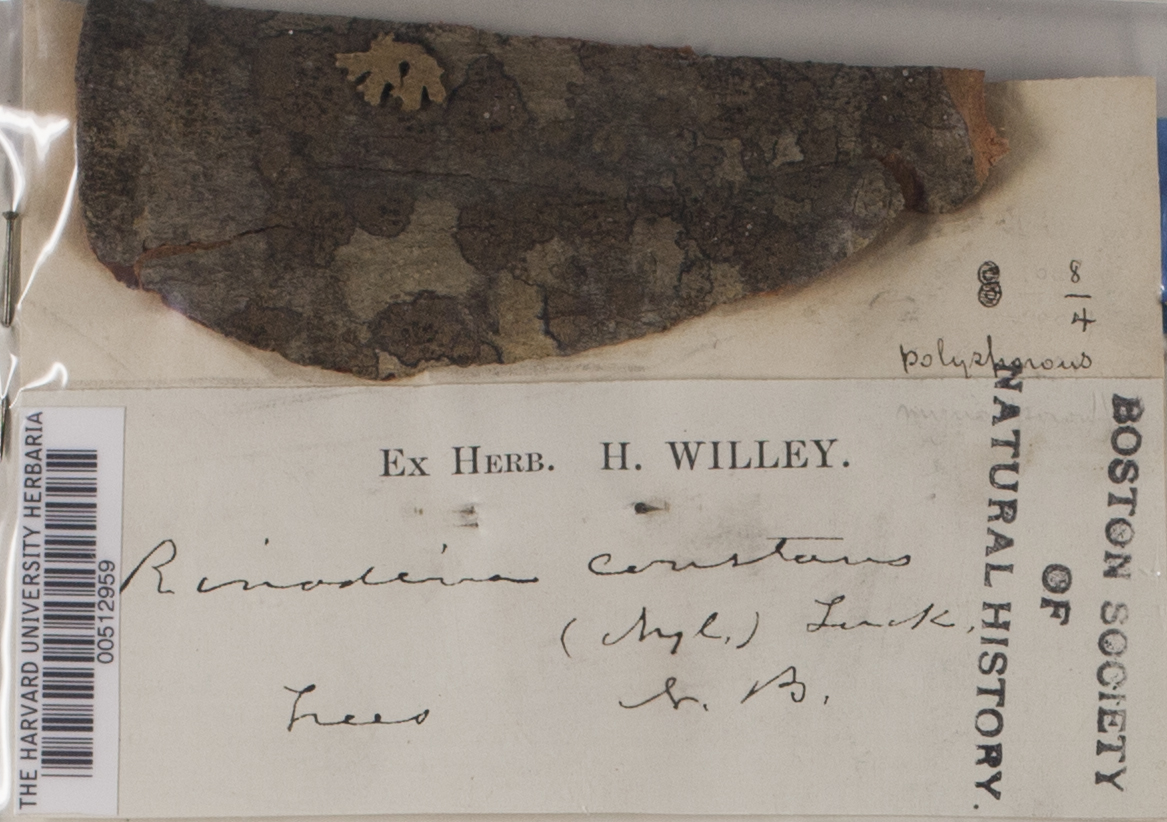 8/4
polysporous
Ex Herb. H. WILLEY.
Rinodina constans
(Nyl.) Tuck.
Trees N. B.
BOSTON SOCIETY
OF
NATURAL HISTORY.
THE HARVARD UNIVERSITY HERBARIA
00512959